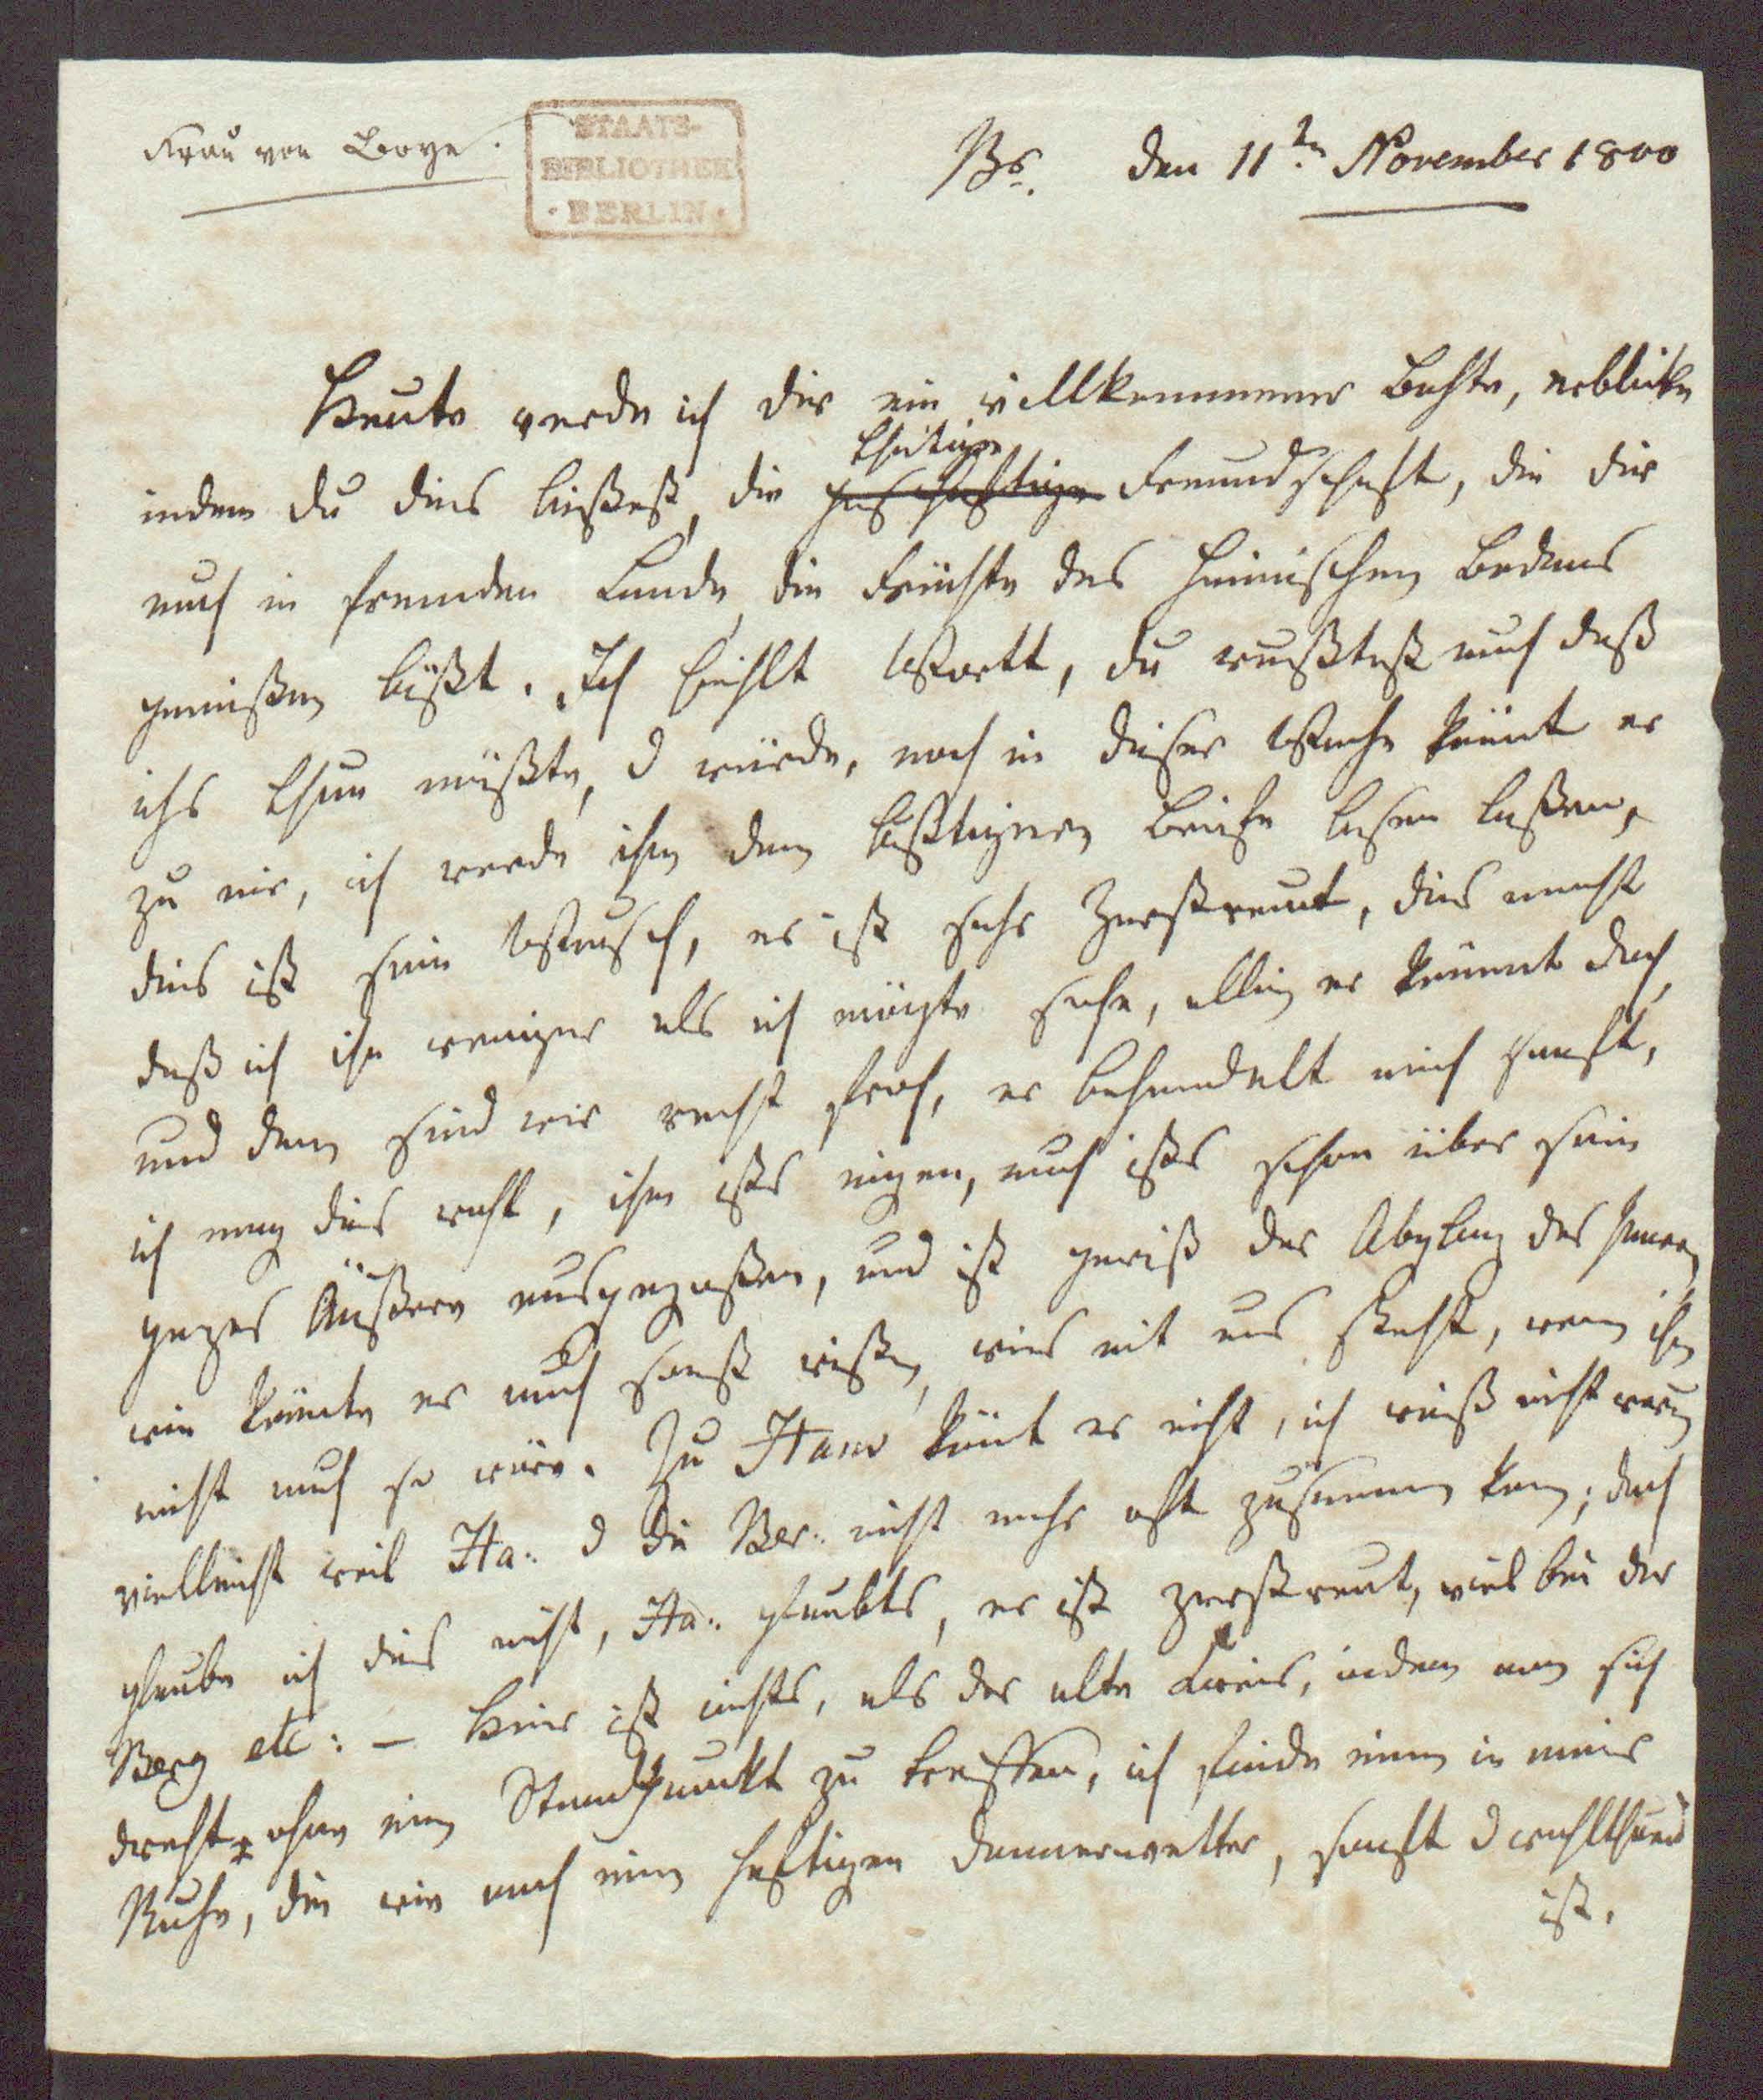 Frau von Boye.
STAATS-
BIBLIOTHEK
· BERLIN ·
Br. den 11tn November 1800
Heute werde ich dir ein willkommener Bohte, erblicke
thätige
indem du dies ließest, die geschäftige Freundschaft, die dir
auch in fremden Lande die Früchte des heimischen Bodens
genießen läßt. Ich hielt Wort, du wußtest auch daß
ichs thun müßte, d würde, noch in dieser Woche kömt er
zu mir, ich werde ihm dem lästigen Briefe lesen laßen,
dies ist sein Wunsch, er ist sehr zerstreut, dies macht
daß ich ihn weniger als ich mögte sehe, allein er kömmt doch,
und dann sind wir recht froh, er behandelt mich sanft,
ich mag dies recht, ihm ists eigen, auch ists schon über sein
ganzes Äußere ausgegoßen, und ist gewiß der Abglanz des Innern,
wie könnte er auch sonst wißen, wies mit uns steht, wenn ihm
nicht auch so wäre. Zu Hane kömt er nicht, ich weiß nicht warum
vielleicht weil Ha: d die Ber: nicht mehr oft zusammen kom; doch
glaube ich dies nicht, Ha: glaubts, er ist zerstreut, viel bei der
Berg etc: – Hier ist nichts, als der alte Kreis, indem man sich
dreht, ohne einen Standpunkt zu treffen, ich finde einen in meiner
Ruhe, die wie nach einem heftigen Donnerwetter, sanft d wohlthuend
ist.